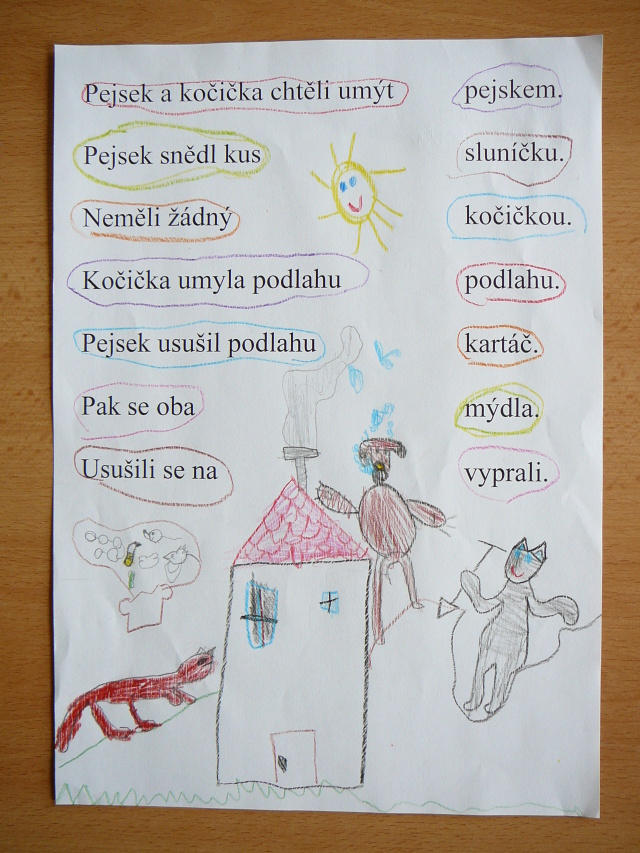 Pejsek a kočička chtěli umýt pejskem.
Pejsek snědl kus sluníčku.
Neměli žádný kočičkou.
Kočička umyla podlahu podlahu.
Pejsek usušil podlahu kartáč.
Pak se oba mýdla.
Usušili se na vyprali.